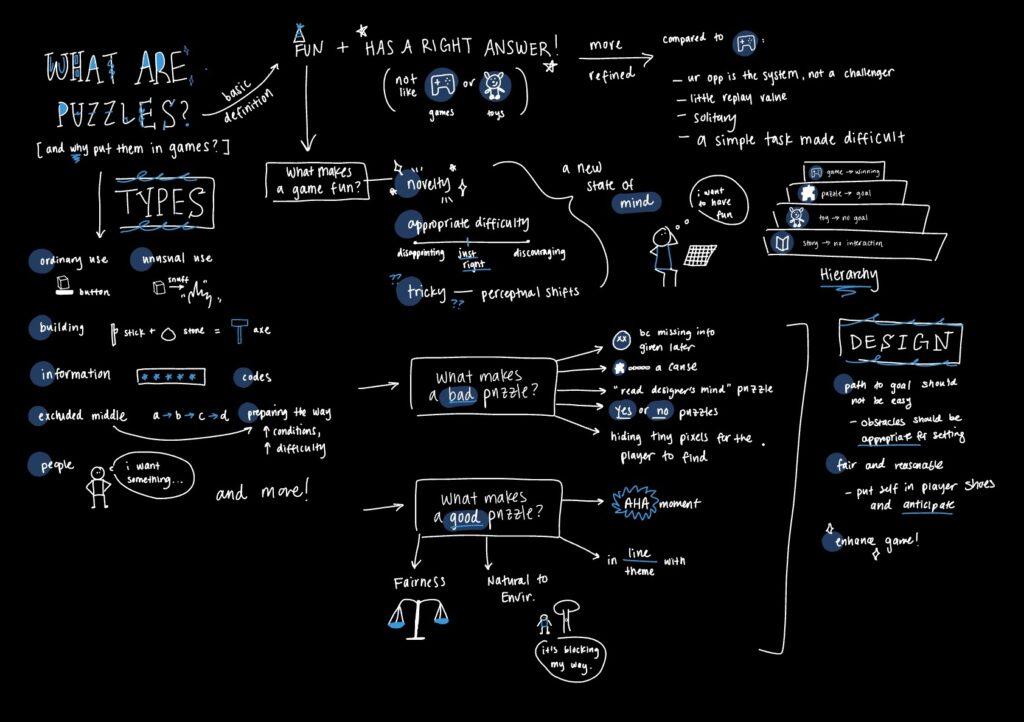 WHAT ARE
PUZZLES?
[and why put them in games?]
basic
definition
FUN + HAS A RIGHT ANSWER!
(not
like
games
or
toys)
more
refined
compared to :
- ur opp is the system, not a challenger
- little replay value
- solitary
- a simple task made difficult
What makes
a game fun?
novelty
appropriate difficulty
disappointing
just
right
discouraging
??
tricky — perceptual shifts
??
a new
state of
mind
i want
to have
fun
game → winning
puzzle → goal
toy → no goal
story → no interaction
Hierarchy
TYPES
ordinary use
button
unusual use
snuff
building
stick + stone = axe
information
*****
codes
excluded middle
a → b → c → d
preparing the way
↑ conditions,
↑ difficulty
people
i want
something...
and more!
What makes
a bad puzzle?
bc missing info
given later
a cause
"read designer's mind" puzzle
yes or no puzzles
hiding tiny pixels for the
player to find
What makes
a good puzzle?
AHA moment
in line with
theme
Fairness
Natural to
Envir.
it's blocking
my way.
DESIGN
path to goal should
not be easy
- obstacles should be
appropriate for setting
fair and reasonable
- put self in player shoes
and anticipate
enhance game!